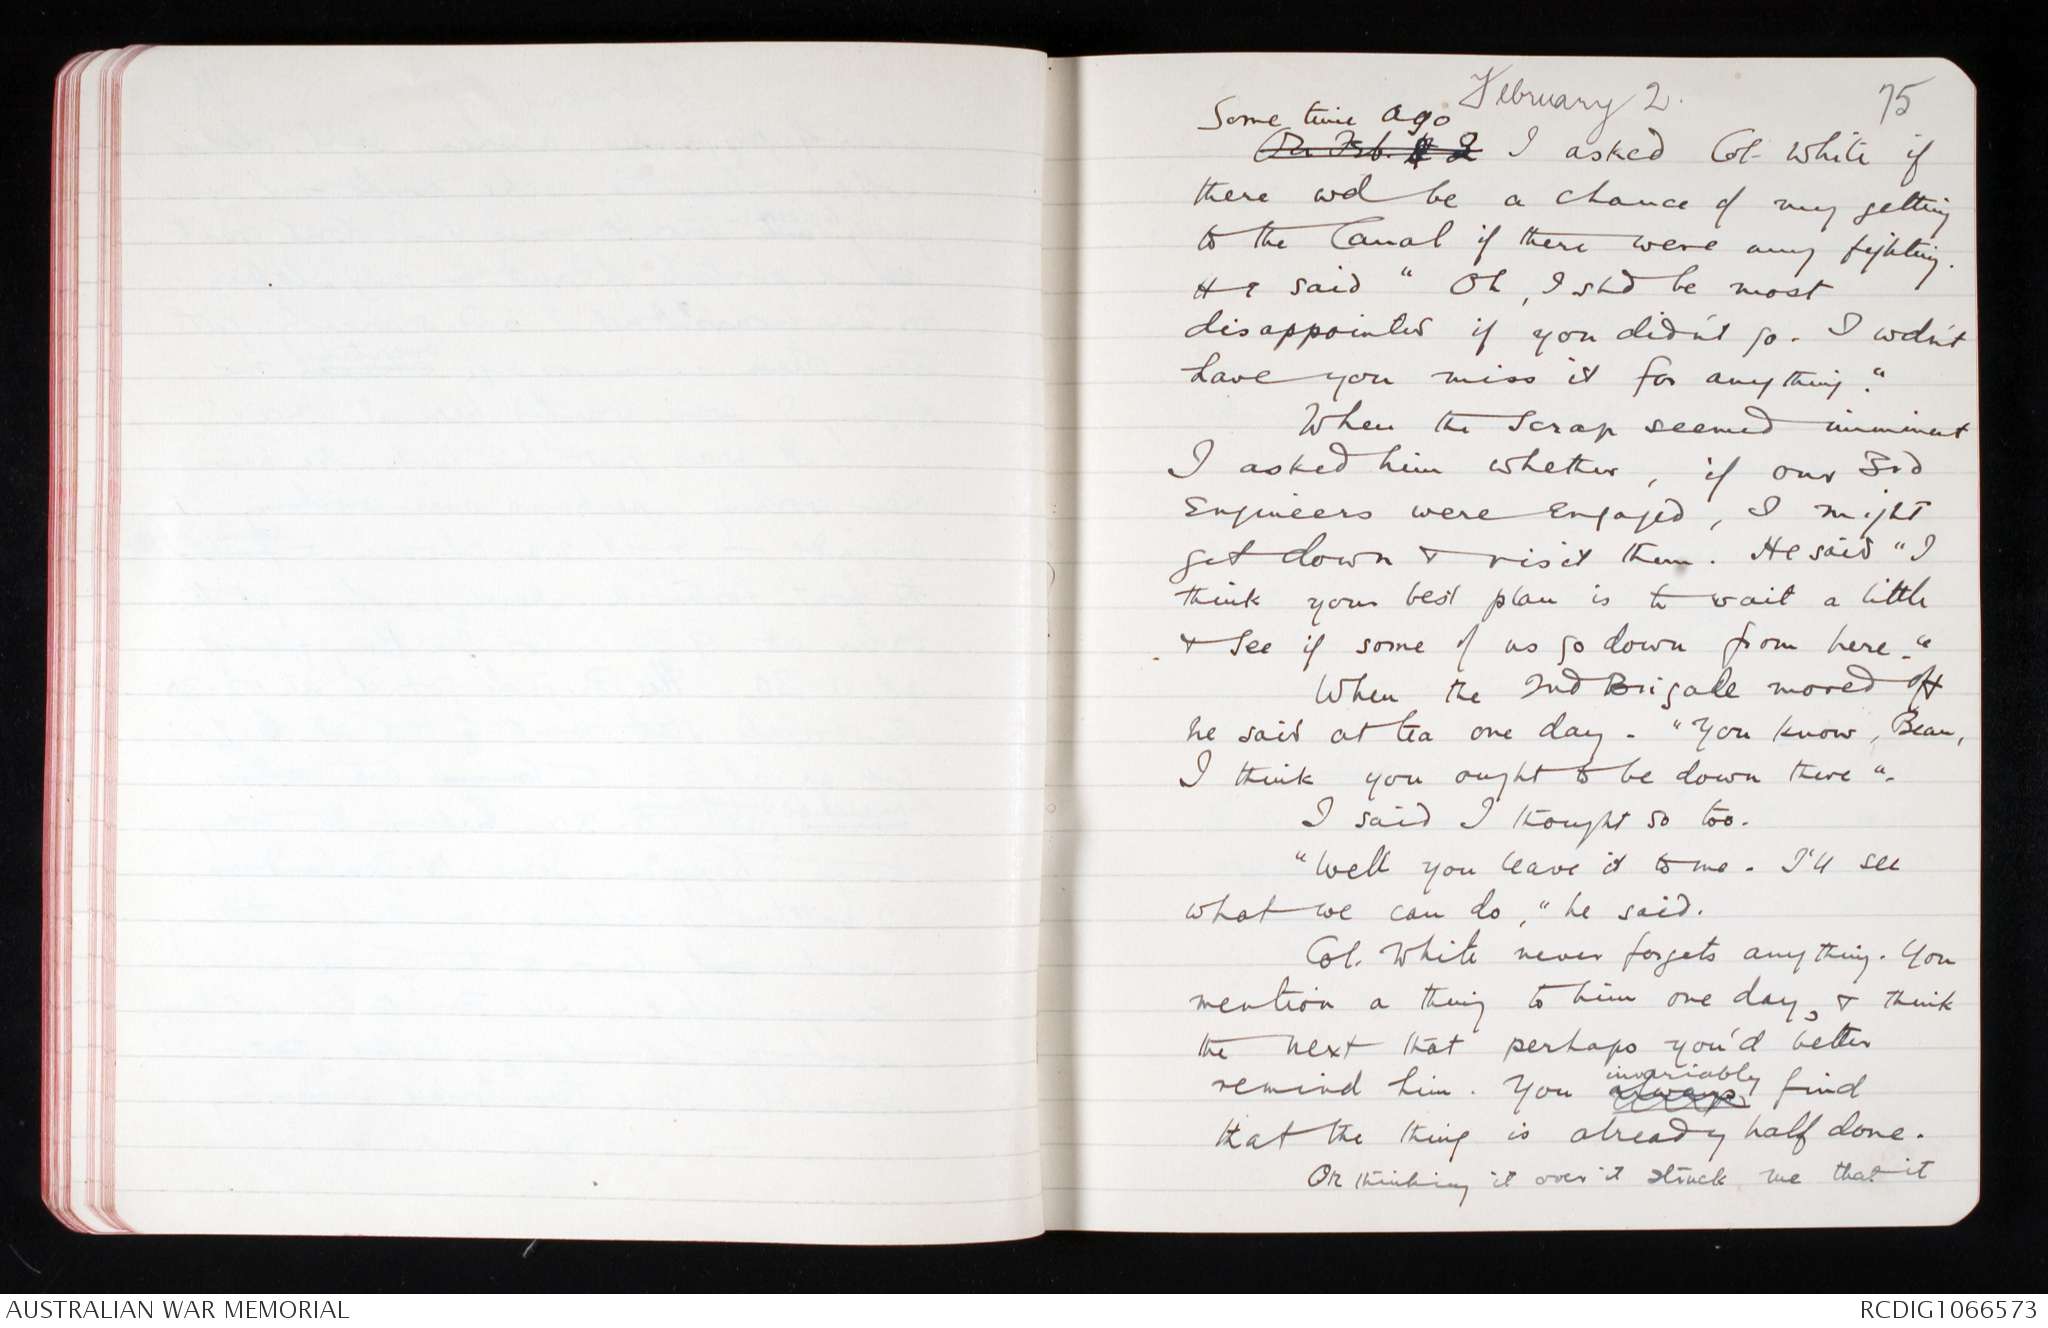 February 2. 75
Some time ago
On Feb. 1 2 I asked Col. White if
there wd be a chance of my getting
to the Canal if there were any fighting.
He said " Oh, I shd be most
disappointed if you didn't go. I wdn't
have you miss it for anything."
When the scrap seemed imminent
I asked him whether, if our 3rd
Engineers were engaged, I might
get down & visit them. He said "I
think your best plan is to wait a little
& see if some of us go down from here."
When the 2nd Brigade moved off
he said at tea one day. "You know, Bean,
I think you ought to be down there".
I said I thought so too.
"Well you leave it to me. I'll see
what we can do," he said.
Col. White never forgets anything. You
mention a thing to him one day, & think
the next that perhaps you'd better
invariably
remind him. You always find
that the thing is already half done.
On thinking it over it struck me that it
AUSTRALIAN WAR MEMORIAL RCDIG1066573